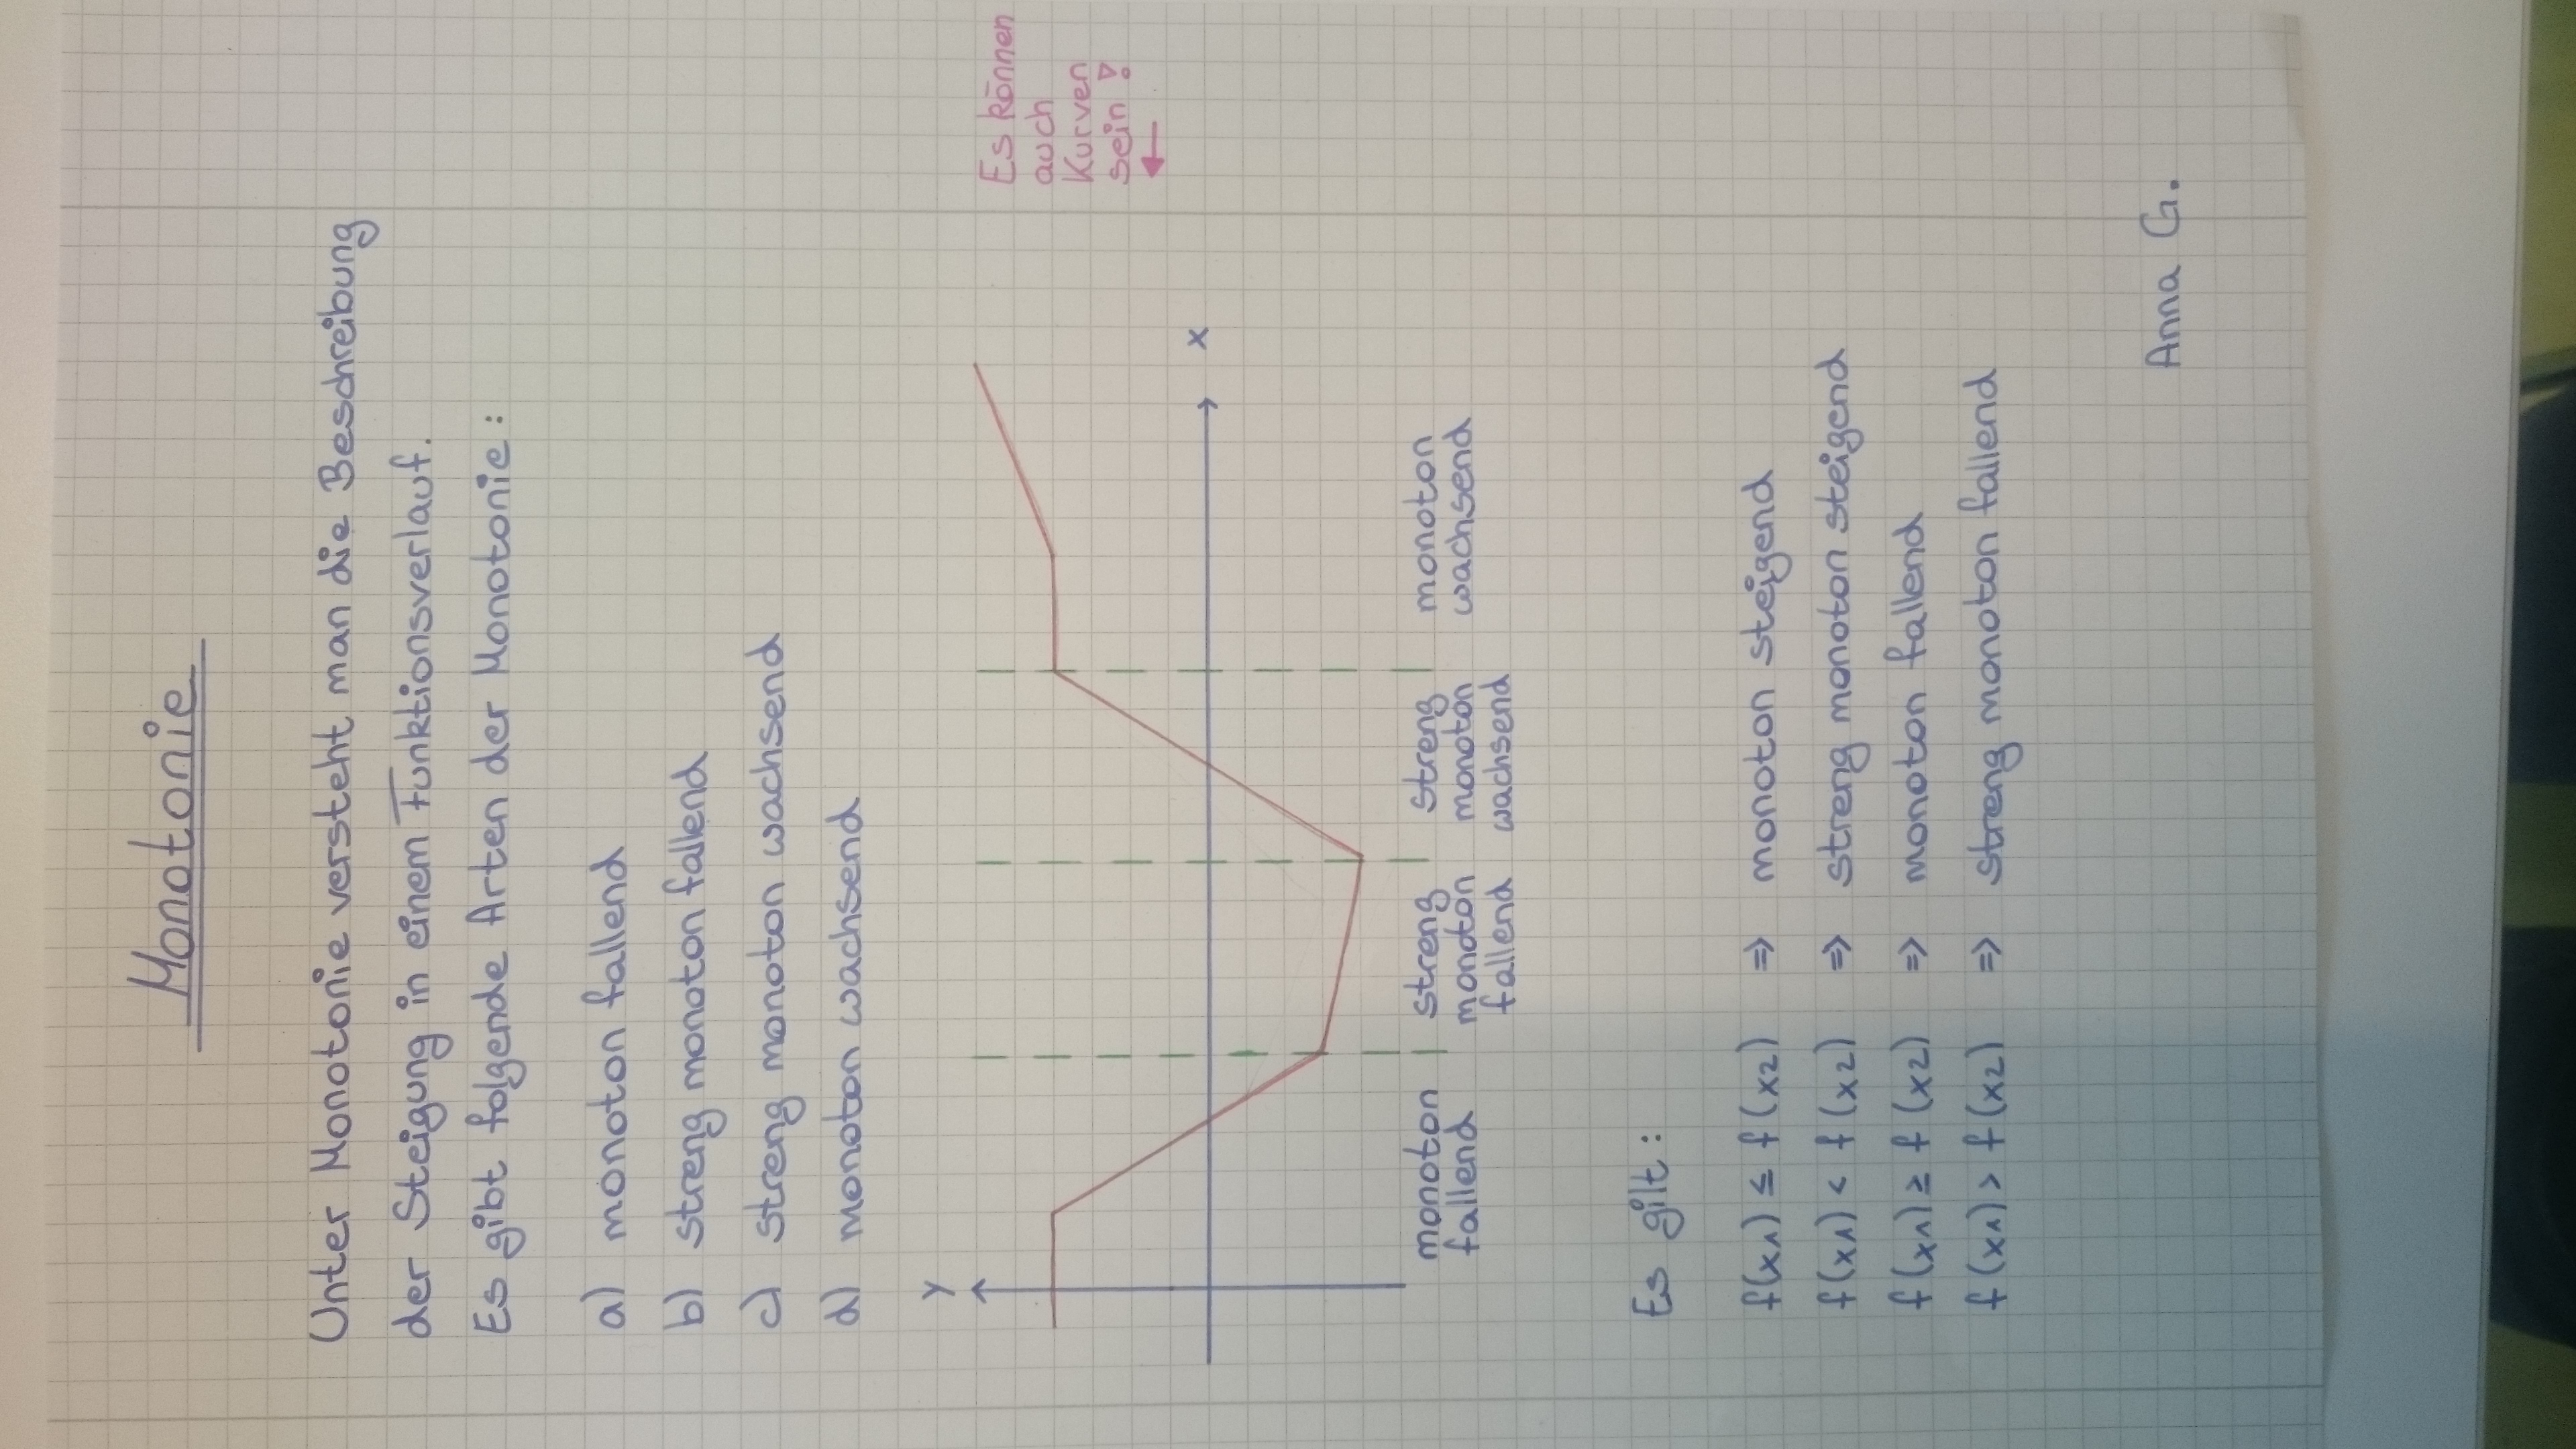 Monotonie
Unter Monotonie versteht man die Beschreibung
der Steigung in einem Funktionsverlauf.
Es gibt folgende Arten der Monotonie:
a) monoton fallend
b) streng monoton fallend
c) streng monoton wachsend
d) monoton wachsend
Es können
auch
Kurven
sein!
y
x
monoton
fallend
streng
monoton
fallend
streng
monoton
wachsend
monoton
wachsend
Es gilt:
f(x1) ≤ f(x2) ⇒ monoton steigend
f(x1) < f(x2) ⇒ streng monoton steigend
f(x1) ≥ f(x2) ⇒ monoton fallend
f(x1) > f(x2) ⇒ streng monoton fallend
Anna G.